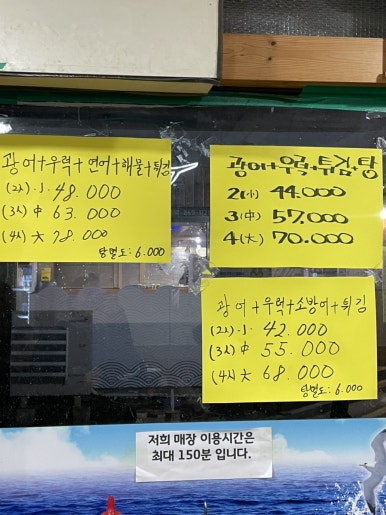 광어+우럭+연어+해물+튀김
(2人)小 48.000
(3人)中 63.000
(4人)大 78.000
탕별도: 6.000
광어+우럭+튀김+탕
2(小) 44.000
3(中) 57.000
4(大) 70.000
광어+우럭+소방어+튀김
(2人)小 42.000
(3人)中 55.000
(4人)大 68.000
탕별도: 6.000
저희 매장 이용시간은
최대 150분 입니다.